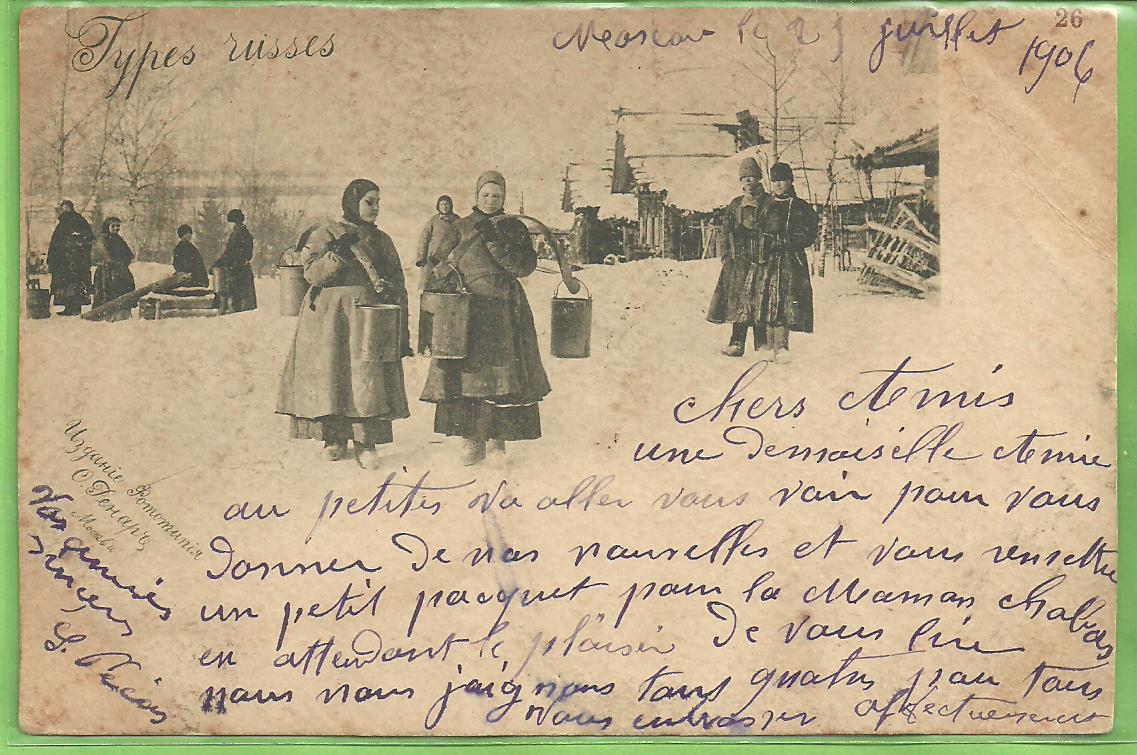 Types russes
26
Moscou le 25 juillet
1906
chers Amis
une Demoiselle Amie
au petites va aller vous voir pour vous
Donner De nos nouvelles et vous remettre
un petit pacquet pour la Maman Chabas
en attendant le plaisir De vous lire
nous nous joignons tous quatre pour tous
vous embrasser affectueusement
Изданіе Фототипія
О. Ренаръ
Москва
Vos amies
sincers